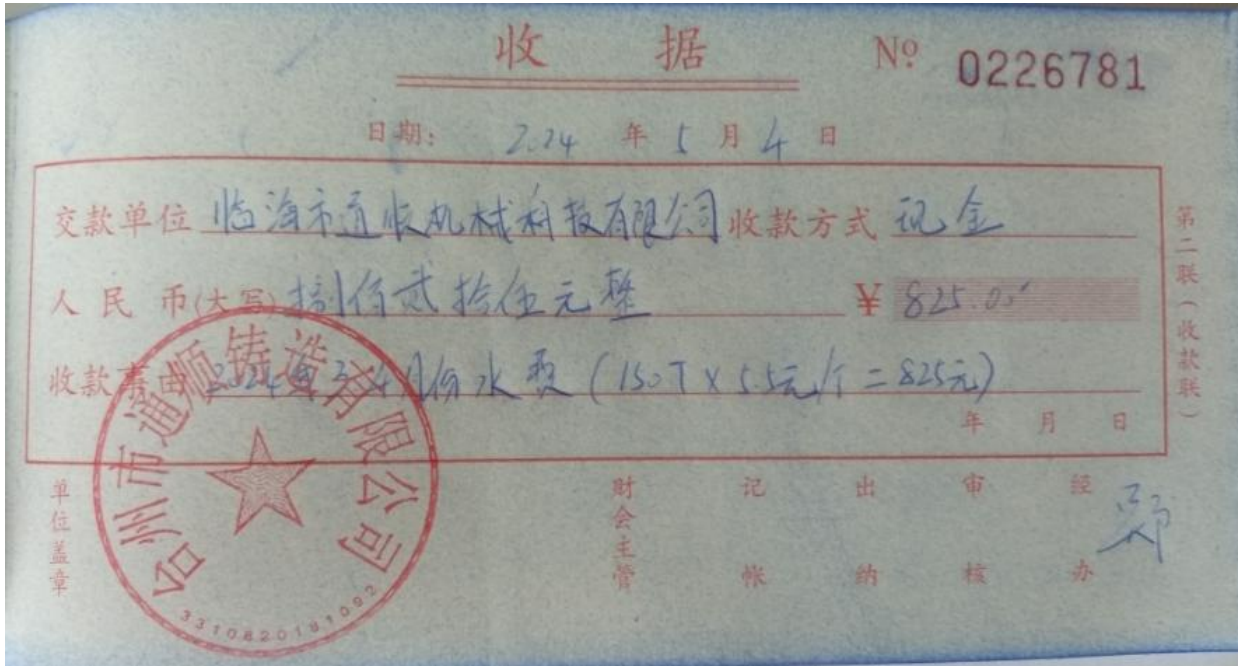 收 据 № 0226781
日期: 2024 年 5 月 4 日
交款单位 临海市通收机械科技有限公司 收款方式 现金
人民币(大写) 捌佰贰拾伍元整 ¥ 825.00
收款事由 2024年3-4月份水费 (150T×5.5元/T=825元)
年 月 日
第二联(收款联)
单位盖章
财会主管 记帐 出纳 审核 经办
台州市通顺铸造有限公司
3310820181092